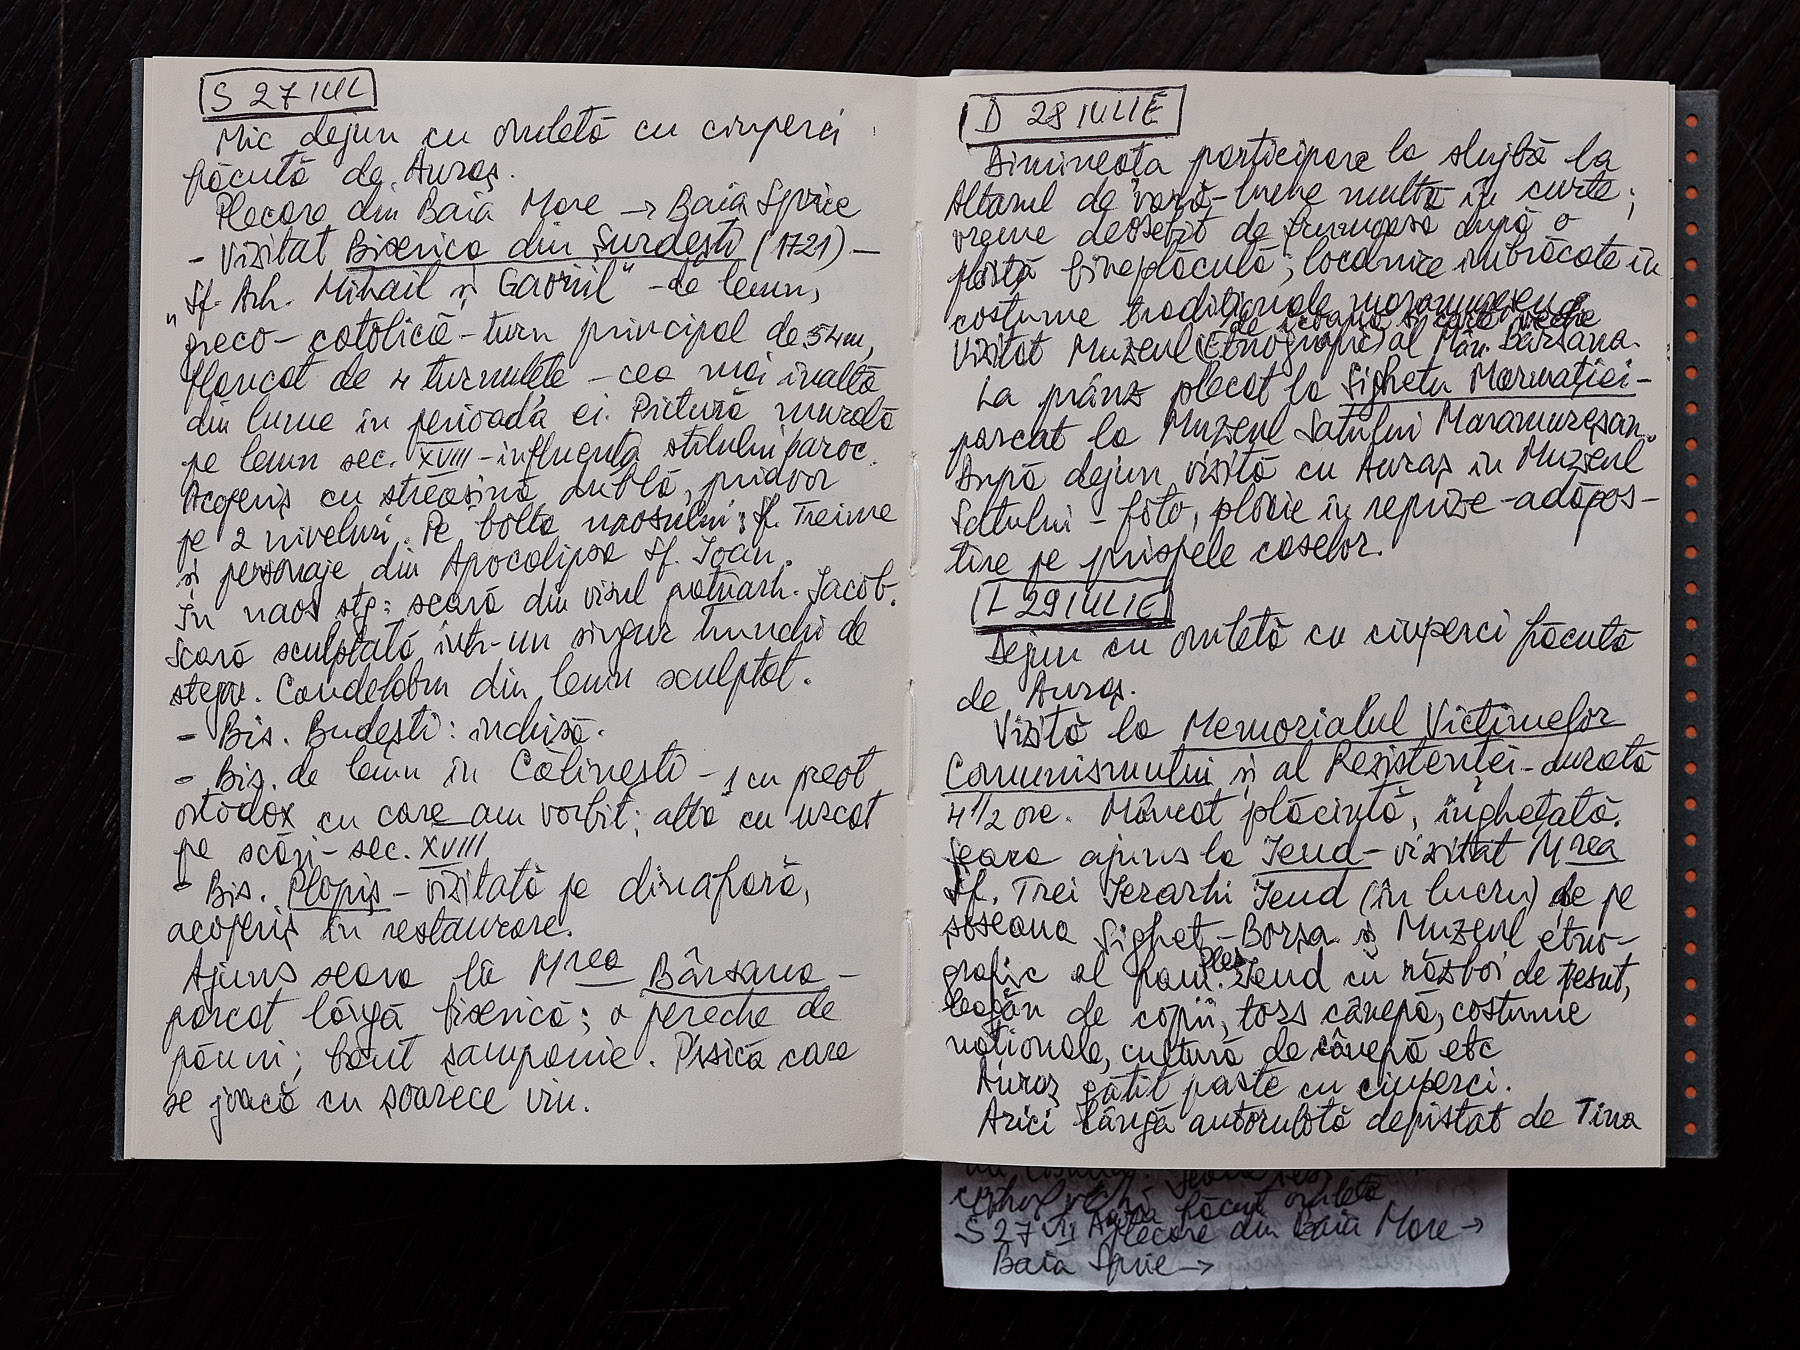 S 27 IUL
Mic dejun cu omletă cu ciuperci
făcută de Auraș.
Plecare din Baia Mare → Baia Sprie
- Vizitat Biserica din Șurdești (1721) –
"Sf. Arh. Mihail și Gavriil" - de lemn,
greco-catolică - turn principal de 54m,
flancat de 4 turnulețe - cea mai înaltă
din lume în perioada ei. Pictură murală
pe lemn sec. XVIII - influența stilului baroc.
Acoperiș cu streașină dublă, pridvor
pe 2 niveluri. Pe bolta naosului: Sf. Treime
și personaje din Apocalipsa Sf. Ioan.
În naos stg: scară din visul patriarh. Iacob.
Scară sculptată într-un singur trunchi de
stejar. Candelabru din lemn sculptat.
- Bis. Budești: închisă.
- Bis. de lemn în Călinești - 1 cu preot
ortodox cu care am vorbit; alta cu urcat
pe scări - sec. XVIII
- Bis. Plopiș - vizitată pe dinafară,
acoperiș în restaurare.
Ajuns seara la Mrea Bârsana -
parcat lângă biserică; o pereche de
păuni; băut șampanie. Pisică care
se joacă cu șoarece viu.
D 28 IULIE
Dimineața participare la slujbă la
Altarul de vară - lume multă în curte;
vreme deosebit de frumoasă după o
noapte; localnice îmbrăcate în
costume tradiționale maramureșene
de icoane și carte veche
Vizitat Muzeul (Etnografic) al Mân. Bârsana.
La prânz plecat la Sighetu Marmației -
parcat la Muzeul Satului Maramureșan.
După dejun vizită cu Auraș în Muzeul
Satului - foto, ploaie în reprize - adăpos-
tire pe prispele caselor.
L 29 IULIE
Dejun cu omletă cu ciuperci făcută
de Auraș.
Vizită la Memorialul Victimelor
Comunismului și al Rezistenței - durată
4 1/2 ore. Mâncat plăcintă, înghețată.
Seara ajuns la Ieud - vizitat Mrea
Sf. Trei Ierarhi Ieud (în lucru) de pe
șoseaua Sighet - Borșa și Muzeul etno-
grafic al fam. Pleș Ieud cu război de țesut,
leagăn de copii, tors cânepă, costume
naționale, cultură de cânepă etc
Auraș gătit paste cu ciuperci.
Arici lângă autorulotă depistat de Tina
făcut omletă
S 27 VII Plecare din Baia Mare →
Baia Sprie →